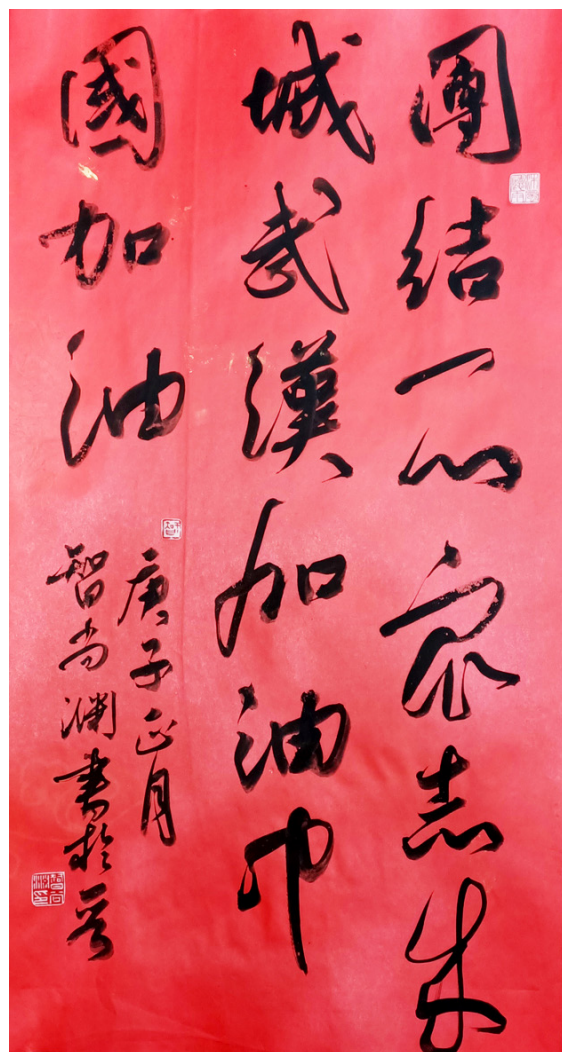 團結一心眾志成
城武漢加油中
國加油
庚子正月
智尚瀾書於晉